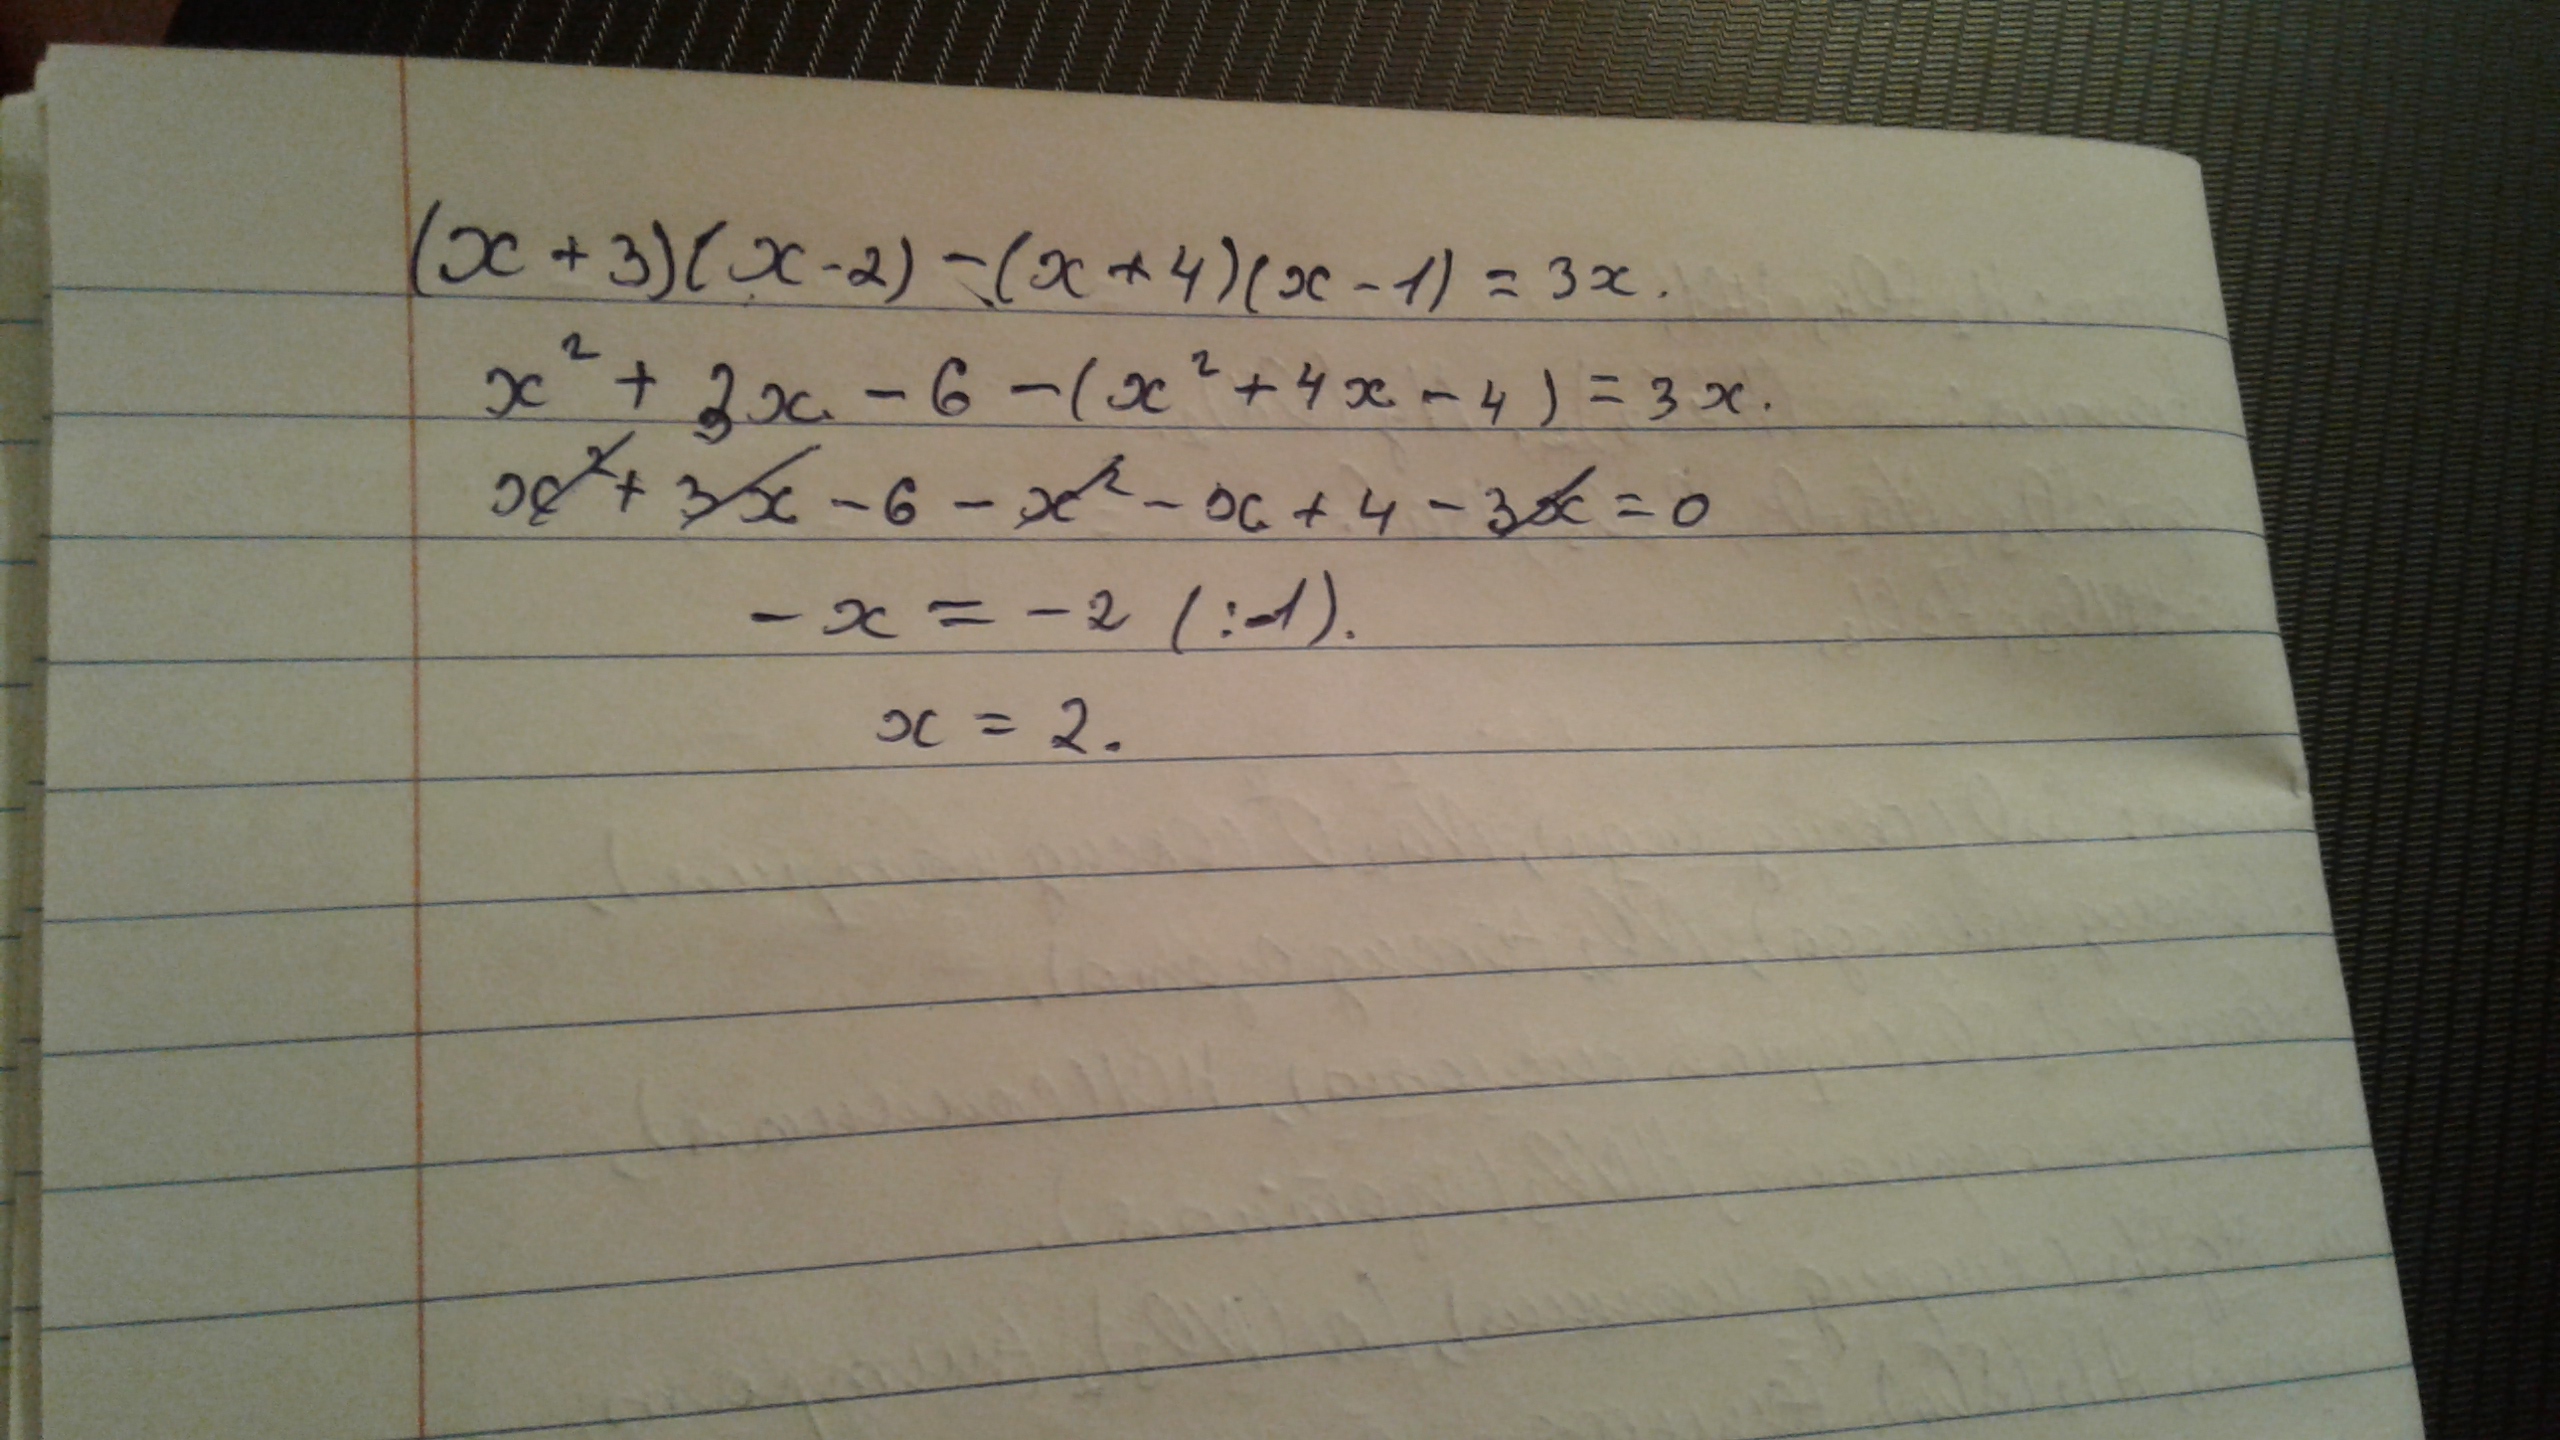 (x + 3)(x - 2) - (x + 4)(x - 1) = 3x.
x² + 3x - 6 - (x² + 4x - 4) = 3x.
x² + 3x - 6 - x² - x + 4 - 3x = 0
- x = - 2 (: -1).
x = 2.